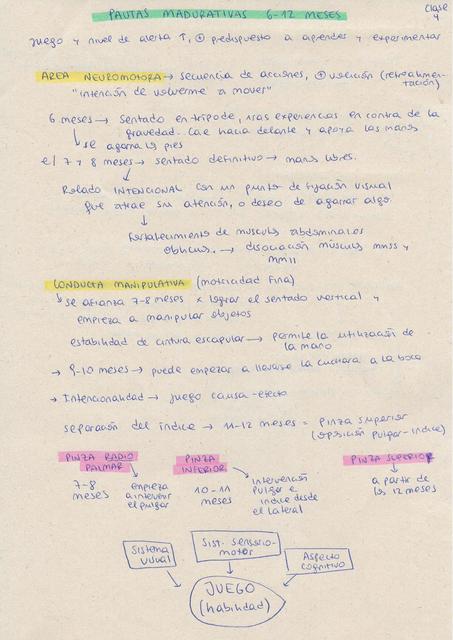 PAUTAS MADURATIVAS 6-12 MESES
Clase 4
Juego y nivel de alerta ↑, ⊕ predispuesto a aprender y experimentar
ÁREA NEUROMOTORA → secuencia de acciones, ⊕ volición (retroalimentación)
"intención de volverme a mover"
6 meses → sentado en trípode, 1ras experiencias en contra de la
gravedad. Cae hacia delante y apoya las manos
↳ se agarra los pies
e/ 7 y 8 meses → sentado definitivo → manos libres.
Rolado INTENCIONAL con un punto de fijación visual
que atrae su atención, o deseo de agarrar algo.
↓
Fortalecimiento de músculos abdominales
oblicuos. → disociación músculos mmss y
mmii
CONDUCTA MANIPULATIVA (motricidad fina)
↳ se afianza 7-8 meses x lograr el sentado vertical y
empieza a manipular objetos
estabilidad de cintura escapular → permite la utilización de
la mano
→ 9-10 meses → puede empezar a llevarse la cuchara a la boca
→ Intencionalidad → juego causa-efecto
separación del índice → 11-12 meses = pinza superior
(oposición pulgar-índice)
PINZA RADIO PALMAR
PINZA INFERIOR
PINZA SUPERIOR
7-8 meses
empieza a intervenir el pulgar
10-11 meses
Intervención pulgar e índice desde el lateral
a partir de los 12 meses
Sistema visual
Sist. sensorio-motor
Aspecto cognitivo
JUEGO
(habilidad)